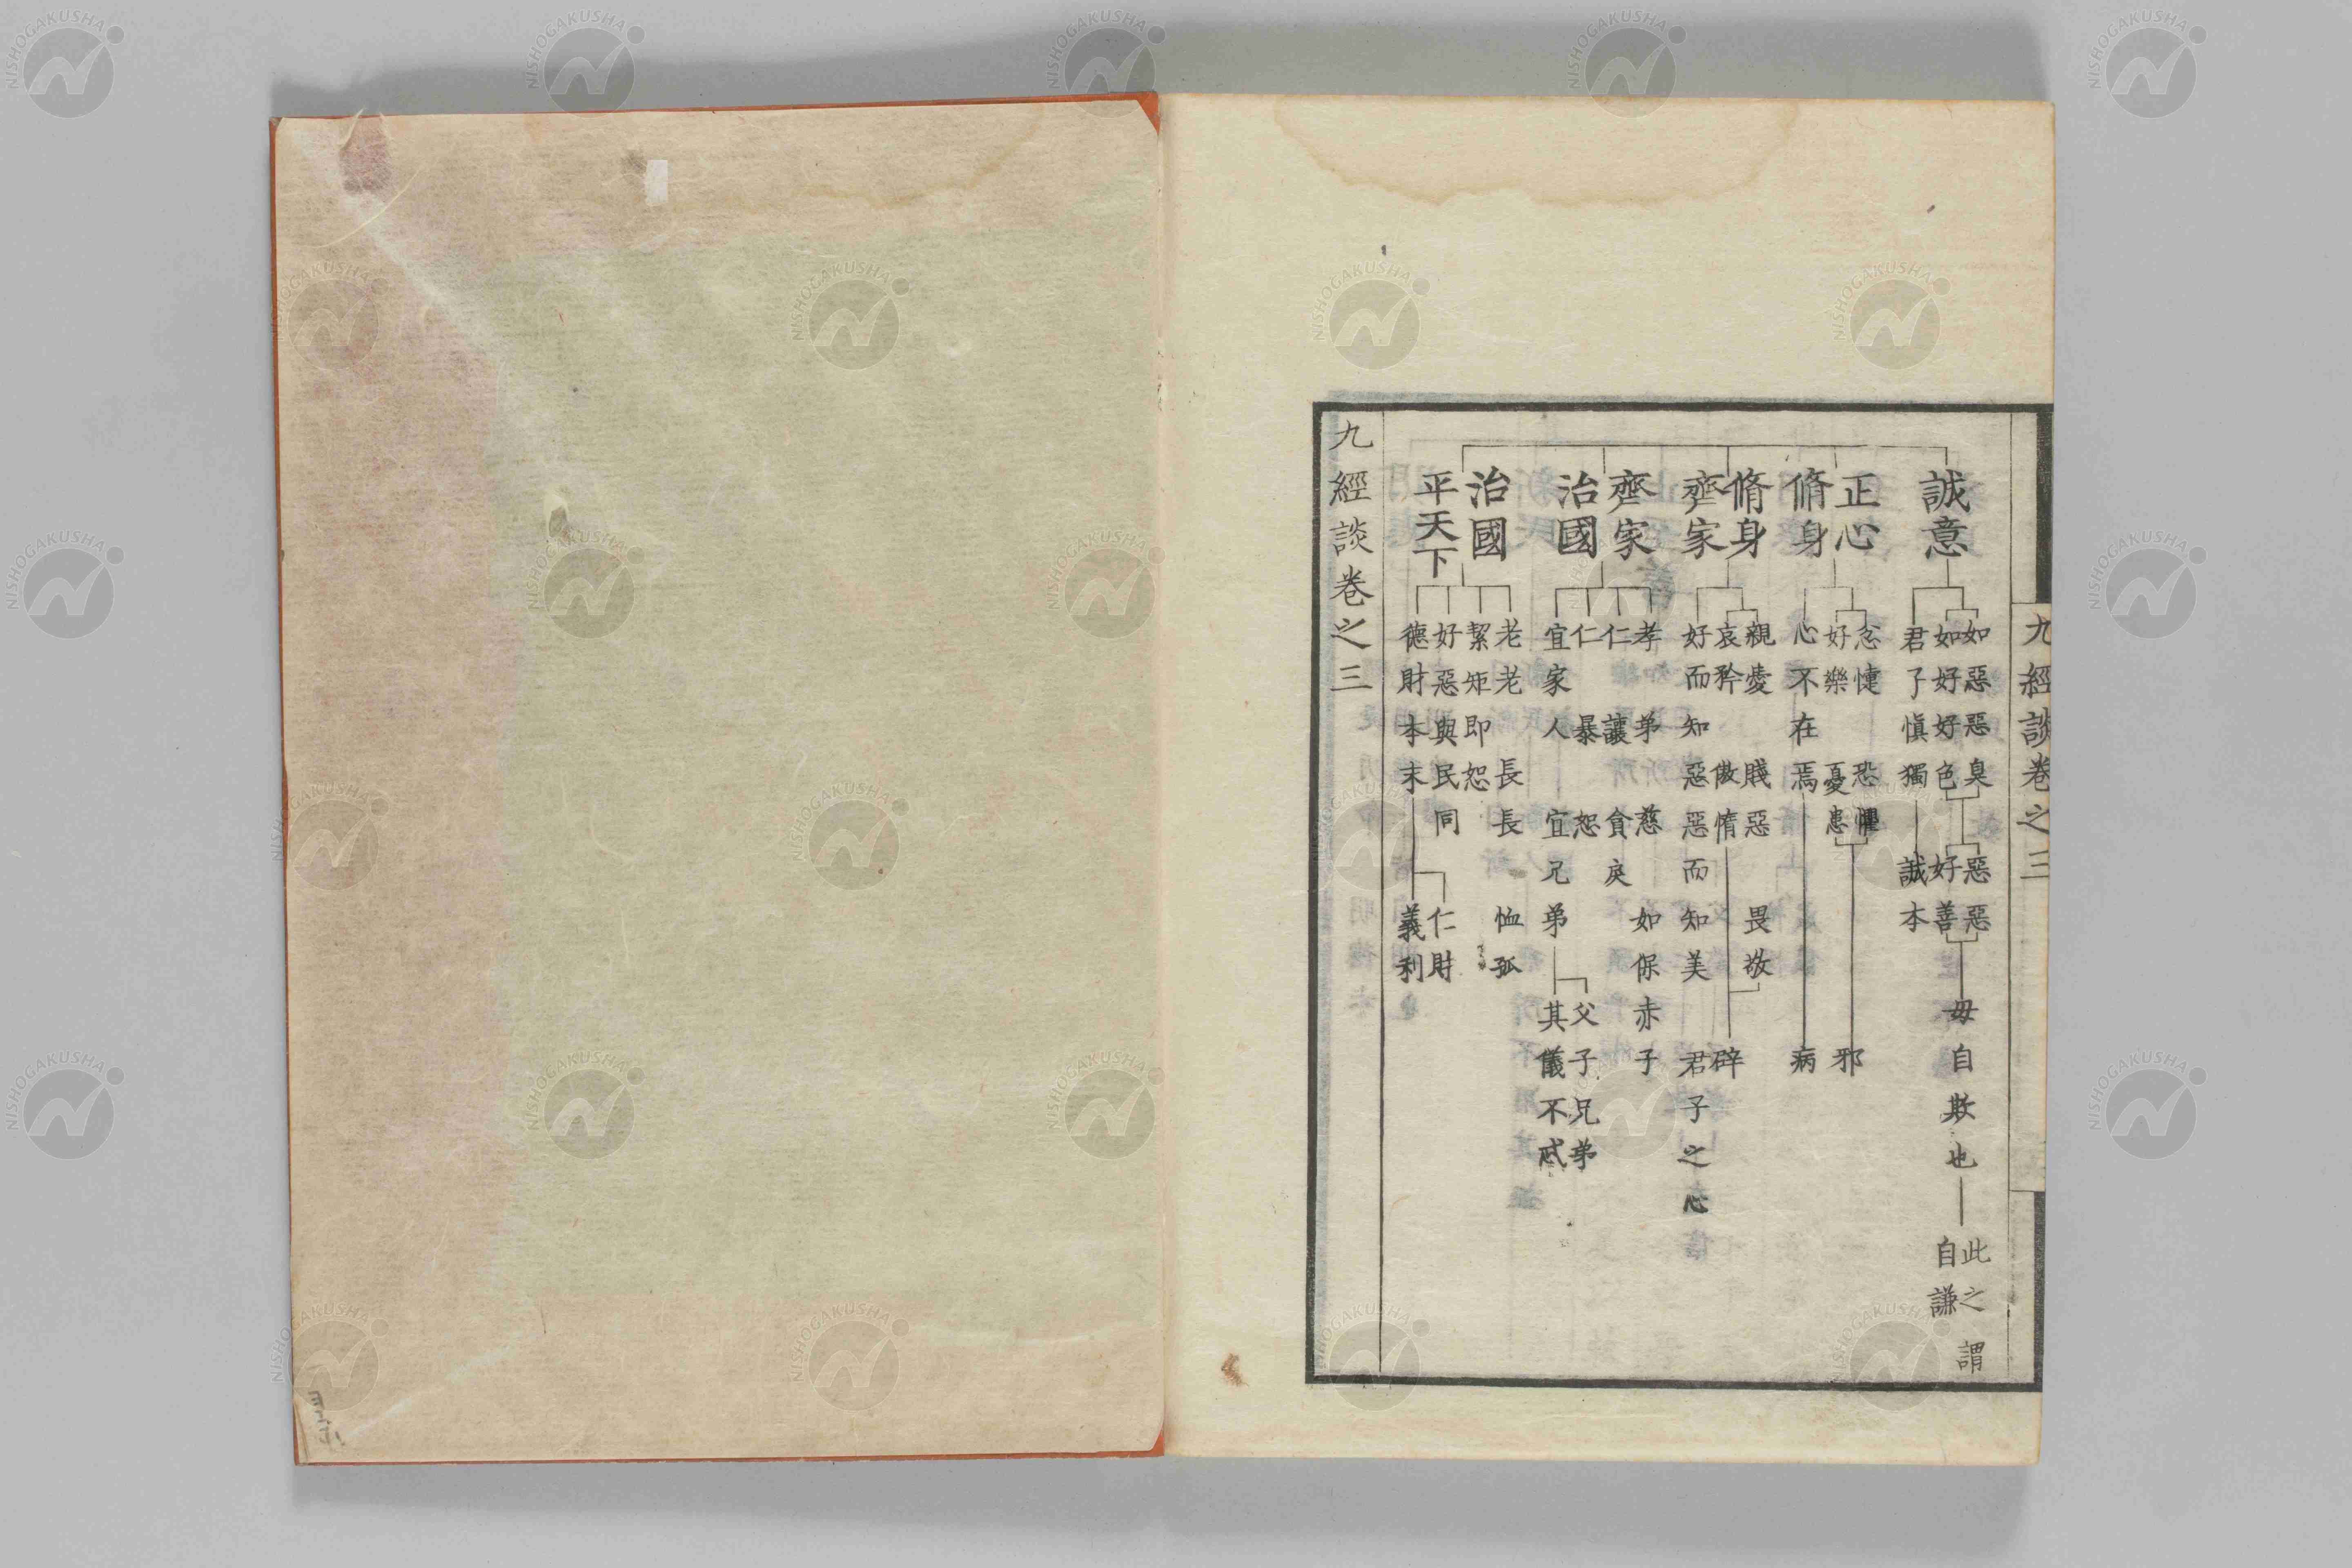 九經談卷之三
誠意
如惡惡臭
如好好色
惡惡
好善
毋自欺也
此之謂
自謙
君子慎獨
誠本
正心
脩身
忿懥 恐懼
好樂 憂患
邪
心不在焉
病
脩身
齊家
親愛 賤惡 畏敬
哀矜 傲惰
辟
好而知惡惡而知美 君子之心
齊家
治國
孝 弟 慈 如保赤子
仁 讓 貪戾
仁 暴 恕
宜家人 宜兄弟
父子兄弟
其儀不忒
治國
平天下
老老 長長 恤孤
絜矩即恕
好惡與民同
德財本末
仁財
義利
九經談卷之三
NISHOGAKUSHA